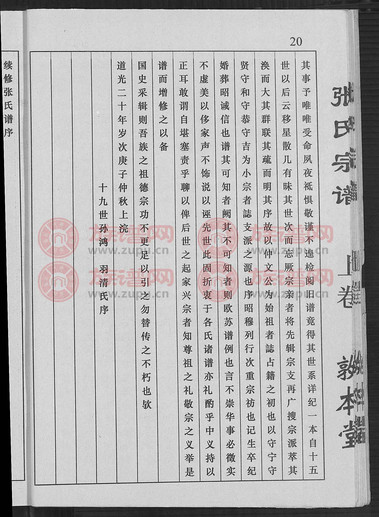 20
张氏宗谱 上卷 敦本堂
其事予唯唯受命夙夜祗惧敬谨不遑检阅旧谱竟得其世系详纪一本自十五
世以后云移星散几有昧其世次而忘厥宗亲者将先辑宗支再广搜宗派萃其
涣而大其群联其疏而明其序故以仲文公为始祖者誌占籍之初也以守宁守
贤守和守恭守吉为小宗者誌支派之源也序昭穆列行次重宗祊也记生卒纪
婚葬昭诚信也谱其可知者阙其不可知者则欧苏谱例也言不崇华事必徵实
不虚美以侈家声不饰说以诬先世此固折衷于各氏诸谱亦礼酌乎中义持以
正耳敢谓自堪塞责乎聊以俾后世之起家兴宗者知尊祖之礼敬宗之义举是
谱而增修之以备
国史采辑则吾族之祖德宗功不更足以引之勿替传之不朽也欤
道光二十年岁次庚子仲秋上浣
十九世孙鸿 羽清氏序
续修张氏谱序
族谱网
www.zupu.cn
族谱网
www.zupu.cn